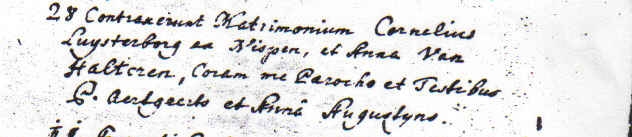 28 Contraxerunt Matrimonium Cornelius
Luysterborg ex Nispen, et Anna Van
Haltcren, Coram me Parocho et Testibus
P. Aertgeerts et Annâ Augustyns.